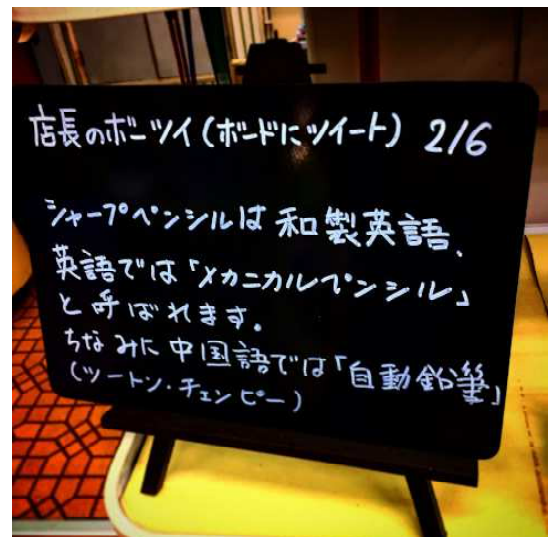 店長のボーツイ(ボードにツイート) 2/6
シャープペンシルは和製英語、
英語では「メカニカルペンシル」
と呼ばれます。
ちなみに中国語では「自動鉛筆」
(ツートン・チェンピー)